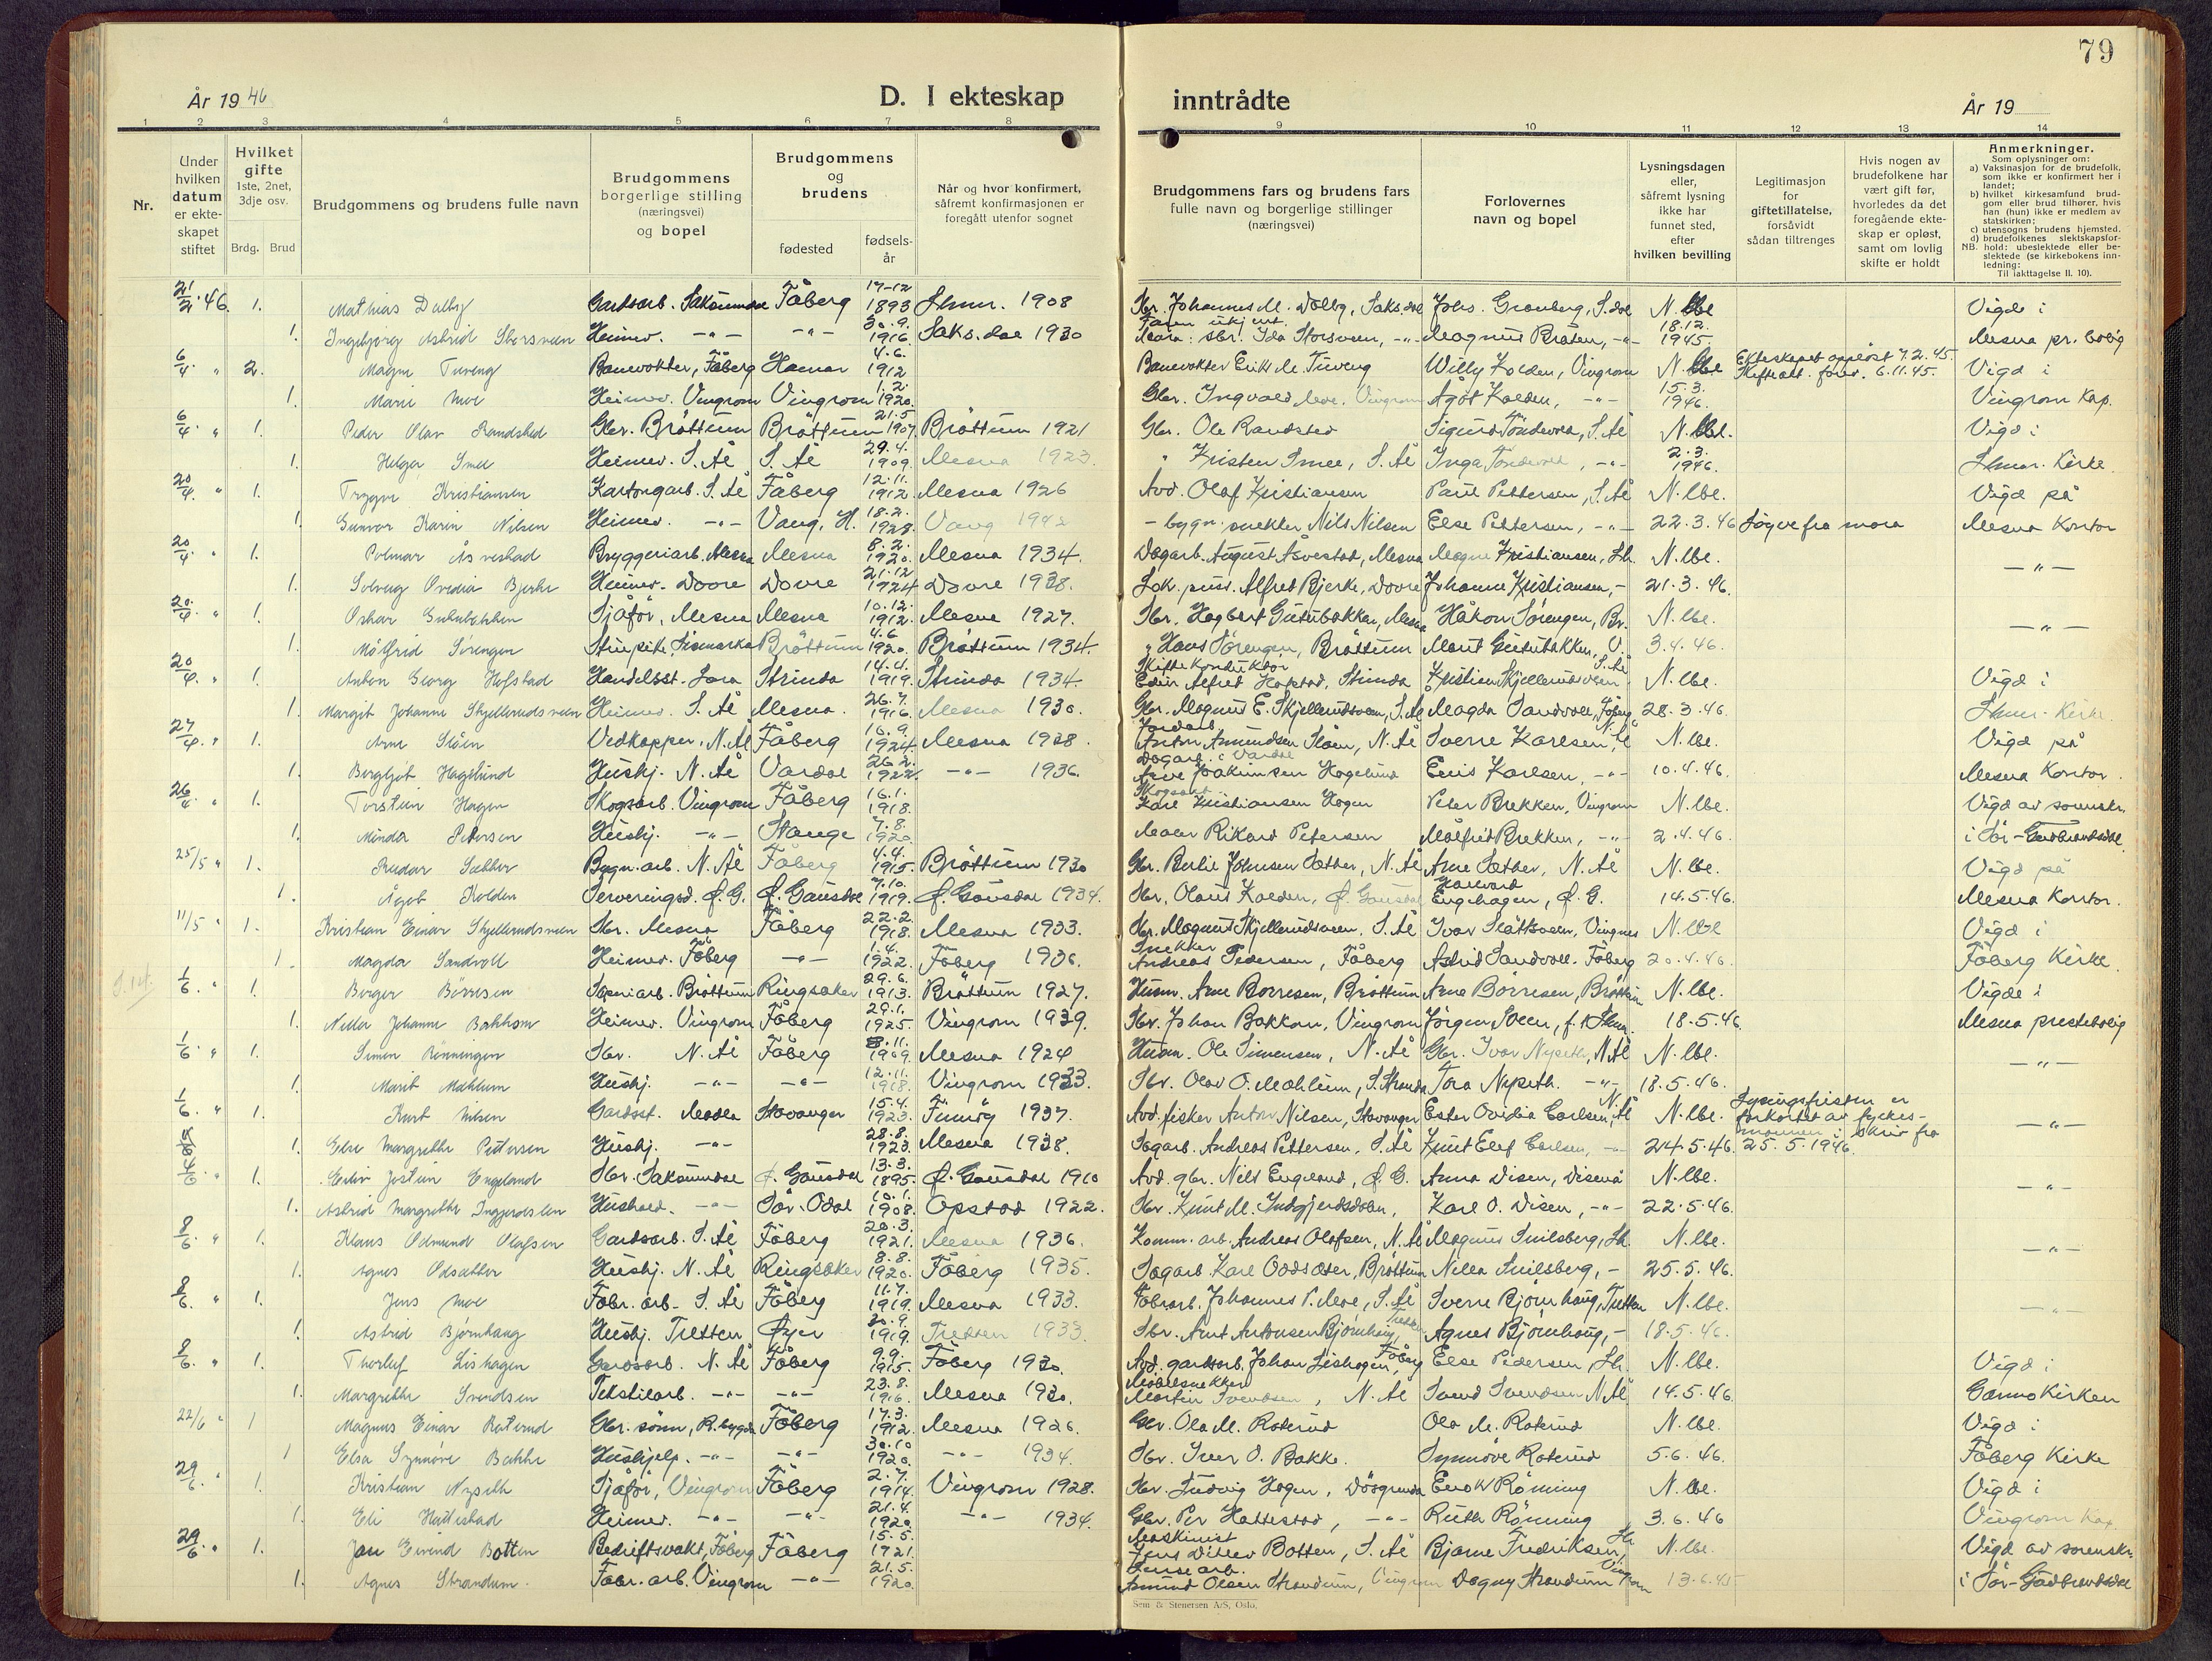 79
År 1946
D. I ekteskap inntrådte
År 19
1 2 3 4 5 6 7 8 9 10 11 12 13 14
Nr.
Under hvilken datum er ekte-skapet stiftet
Hvilket gifte 1ste, 2net, 3dje osv.
Brdg. Brud
Brudgommens og brudens fulle navn
Brudgommens borgerlige stilling (næringsvei) og bopel
Brudgommens og brudens
fødested
fødsels-år
Når og hvor konfirmert, såfremt konfirmasjonen er foregått utenfor sognet
Brudgommens fars og brudens fars fulle navn og borgerlige stillinger (næringsvei)
Forlovernes navn og bopel
Lysningsdagen eller, såfremt lysning ikke har funnet sted, efter hvilken bevilling
Legitimasjon for giftetillatelse, forsåvidt sådan tiltrenges
Hvis nogen av brudefolkene har vært gift før, hvorledes da det foregående ekte-skap er opløst, samt om lovlig skifte er holdt
Anmerkninger.
Som oplysninger om:
a) Vaksinasjon for de brudefolk, som ikke er konfirmert her i landet;
b) hvilket kirkesamfund brud-gom eller brud tilhører, hvis han (hun) ikke er medlem av statskirken;
c) utensogns brudens hjemsted.
d) brudefolkenes slektskapsfor-hold: ubeslektede eller be-slektede (se kirkebokens inn-ledning:
NB.
Til iakttagelse II. 10).
21/2 46 1. Mathias Dalby Gardsarb. Saksumdal Fåberg 17-12 1893 Lhmr. 1908 Sbr. Johannes M. Dalby, Saks.dal Johs. Granberg, S.dal N. lbl Vigd i
1. Ingebjørg Astrid Storsveen Heimev. -"- -"- 30.9. 1916 Saks.dal 1930 Faren ukjent. Mora: sbr. Ida Storsveen, -"- Magnus Bråten, -"- 18.12. 1945. Mesna pr. bolig
6/4 " 2. Magne Tuveng Banevokter, Fåberg Hamar 4.6. 1912 Banevokter Erik M. Tuveng Willy Kolden, Vingrom N. lbl Ekteskapet oppløst 7.2.45. 6.11.45. Vigd i
1. Marie Moe Heimev. Vingrom Vingrom 1.2. 1920. Gbr. Ingvald Moe. Vingrom Ågot Kolden, -"- 15.3. 1946. Vingrom Kap.
6/4 " 1. Peder Olav Randsted Gbr. Brøttum Brøttum 21.5 1907 Brøttum 1921 Gbr. Ole Randsted Sigurd S. Åi N. lbl. Vigd i
1. Helga Smee Heimev. S. Ål S. Ål 29.4. 1909. Mesna 1923. " Kristen Smee, S. Ål Inga -"- 2.3. 1946. Lhmr. Kirke
20/4. " 1. Trygve Kristiansen Kartongarb. S. Ål Fåberg 12.11. 1912 Mesna 1926 Avd. Olaf Kristiansen Paul Pettersen, S. Ål N. lbl. Vigd på
1. Gunvor Karin Nilsen Heimev. -"- Vang, H. 18.2. 1928. Vang 1942 - bygn. snekker Nils Nilsen Else Pettersen, -"- 22.3.46 Løyve fra mora Mesna Kontor
20/4 " 1. Bryggeriarb. Mesna Mesna 8.2. 1920. Mesna 1934. Dagarb. August Åsvestad, Mesna Magne Kristiansen, Lh. N. lbl. -"-
1. Solveig Ovedia Bjerke Heimev. Dovre Dovre 21.12 1924 Dovre 1938. Lok. puss. Alfred Bjerke, Dovre Johanne Kristiansen, - 21.3.46.
20/4 " 1. Oskar Gutubakken Sjåfør, Mesna Mesna 10.12. 1912. Mesna 1927. Sbr. Hagbart Gutubakken, Mesna Håkon Sørengen, Br. N. lbl. -"-
1. Målfrid Sørengen Brøttum 4.6 1920. Brøttum 1934. " Hans Sørengen, Brøttum Marit Gutubakken 3.4.46.
20/4. " 1. Anton Georg Hofstad Handelsst. Strinda 14.4. 1919. Strinda 1934. Skiftekonduktør Edvin Alfred Hofstad, Strinda Kristian Skjellerudsveen S. Ål N. lbl. Vigd i
1. Margit Johanne Skjellerudsveen Heimev. S. Ål Mesna. 26.7. 1916. Mesna 1930. Gbr. Magnus E. Skjellerudsveen, S. Ål Magda Sandvoll, Fåberg 28.3.46. Lhmr. Kirke.
27/4. " 1. Arne Slåen Vedkapper, N. Ål Fåberg 16.9. 1924. Mesna 1938. Anton Amundsen Slåen, N. Ål Sverre Karlsen, N. Ål N. lbl. Vigd på
1. Bergljot Hagelund Hushj. N. Ål Vardal 26.2. 1922. -"- 1936. Dagarb. i Vardal Arne Joakimsen Hagelund Enis Karlsen, -"- 10.4.46. Mesna Kontor.
26/4. " 1. Torstein Hagen Skogsarb. Vingrom Fåberg 16.1. 1918. Skogsarb. Karl Kristiansen Hagen Peter Brekken, Vingrom N. lbl. Vigd av sorenskr.
1. Minda Petersen Hushj. -"- Stange 7.8. 1920. Maler Rikard Petersen Målfrid Brekken, -"- 2.4.46. i Sør-Gudbrandsdal
25/5 " 1. Reidar Sæther Bygn.arb. N. Ål Fåberg 4.4. 1915. Brøttum 1930 Gbr. Berlie Johnsen Sæther, N. Ål Arne Sæther, N. Ål N. lbl. Vigd på
1. Ågot Kolden Serveringsd. Ø. G. Ø. Gausdal 7.10. 1919. Ø. Gausdal 1934. Sbr. Olaus Kolden, Ø. Gausdal Halvard Engehagen, Ø. G. 14.5.46. Mesna Kontor.
11/5 " 1. Kristian Einar Skjellerudsveen Sbr. Mesna Fåberg 22.2. 1918. Mesna 1933. Sbr. Magnus Skjellerudsveen, S. Ål Ivar Slåttsveen, Vingnes N. lbl Vigd i
1. Magda Sandvoll Heimev. Fåberg -"- 1.4. 1922. Fåberg 1936. Snekker Andreas Pedersen, Fåberg Astrid Sandvoll. Fåberg 20.4.46. Fåberg Kirke.
1/6. " 1. Birger Børresen Brøttum Ringsaker 29.6. 1913. Brøttum 1927. Husm. Arne Børresen, Brøttum Arne Børresen, Brøttum N. lbl. Vigde i
1. Nilla Johanne Bakkom Heimev. Vingrom Fåberg 29.1. 1925. Vingrom 1939. Sbr. Johan Bakkom, Vingrom Jørgen Sveen, f. Lhmr. 18.5.46. Mesna prestebolig
1/6. " 1. Simen Rønningen Sbr. N. Ål Fåberg 8.11. 1909 Mesna 1924 Husm. Ole Simensen, N. Ål Gbr. Ivar Nyseth, N. Ål N. lbl. -"-
1. Marit Mæhlum Hushj. -"- -"- 12.11. 1918. Vingrom 1933. Sbr. Olav O. Mæhlum, S. Tora Nyseth. -"- 18.5.46.
1/6. " 1. Kurt Nilsen Gardsst. Stavanger 15.4. 1923. 1937. Avd. fisker Anton Nilsen, Stavanger Ester Ovidia Carlsen, N. Ål N. lbl. Lysningsfristen er forkortet av fylkes-mannen i skriv fra 25.5.1946. -"-
1. Else Margrethe Pettersen Hushj. -"- 28.8. 1923. Mesna 1938. Sagarb. Andreas Pettersen, S. Ål Knut Elef Carlsen, -"- 24.5.46.
4/6. " 1. Eiliv Jostein Engeland Sbr. Saksumdal Ø. Gausdal 13.3. 1895. Ø. Gausdal 1910 Avd. gbr. Nils Engeland, Ø. G. Anna Disen, Disenå N. lbl. -"-
1. Astrid Margrethe Hushold. -"- Sør-Odal 10.1. 1908. Opstad 1922. Sbr. Knut M. Karl O. Disen, -"- 22.5.46.
8/6. " 1. Klaus Odmund Olafsen Gardsarb. S. Ål Fåberg 20.3. 1921. Mesna 1936. Komm. arb. Andreas Olafsen, N. Ål Magnus Smilsberg, Lh. N. lbl. -"-
1. Agnes Odsæther Hushj. N. Ål Ringsaker 8.8. 1920. Fåberg 1935. Sagarb. Karl Oddsæter, Brøttum Nilla Smilsberg, - 25.5.46.
8/6. " 1. Jens Moe Fabr. arb. S. Ål Fåberg 11.7. 1919. Mesna 1933. Fabrarb. Johannes P. Moe, S. Ål Sverre Bjørnhaug, Tretten N. lbl. -"-
1. Astrid Bjørnhaug Hushj. Tretten Øyer 20.9. 1919. Tretten 1933. Sbr. Arnt Antonsen Bjørnhaug, Tretten Agnes Bjørnhaug, - 18.5.46.
8/6. " 1. Thorleif Lishagen Gardsarb. N. Ål Fåberg 9.9. 1915. Fåberg 1930. Avd. gardsarb. Johan Lishagen, Fåberg Else Pedersen, Lh. N. lbl. Vigd i
1. Margrethe Svendsen Tekstilarb. -"- -"- 23.8. 1916. Mesna 1930. Møbelsnekker Morten Svendsen, N. Ål Svend Svendsen, N. Ål 14.5.46. Garmokirken
22/6 " 1 Magnus Einar Roterud Gbr. sønn, R.bygda Fåberg 17.3. 1912. Mesna 1926. Gbr. Ola M. Roterud Ola M. Roterud N. lbl. Vigd i
1 Elsa Synnøve Bakke Hushjelp. -"- -"- 30.10 1920. -"- 1934. Sbr. Iver O. Bakke. Synnøve Roterud 5.6.46. Fåberg Kirke
29/6. " 1. Kristian Nyseth Sjåfør, Vingrom Fåberg 2.7. 1914. Vingrom 1928. Sbr. Ludvig Hagen, Enok Rønning N. lbl. Vigd i
1. Eli Hattestad Heimev. -"- -"- 21.4. 1920 -"- 1934. Gbr. Per Hattestad, -"- Ruth Rønning 3.6.46 Vingrom Kap.
29/6. " 1. Jan Eivind Botten Bedriftsvakt, Fåberg Fåberg 15.5. 1921. Maskinist Jens Ditlev Botten, S. Ål Bjarne Fredriksen, Lh. N. lbl. Vigd av sorenskr.
1. Agnes Strandum. Fabr. arb. Vingrom -"- 21.5. 1920. Amund Olsen Strandum, Vingrom Dagny Strandum Vingrom 13.6.45 i Sør-Gudbrandsdal
Sem & Stenersen A/S, Oslo.